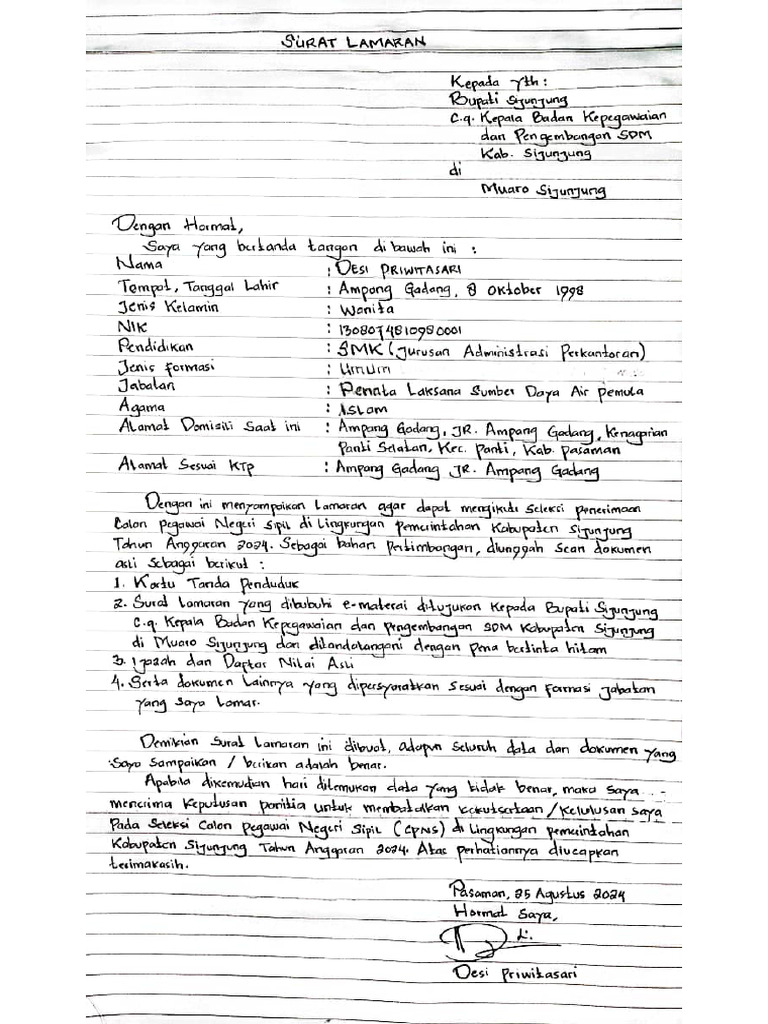 SURAT LAMARAN
Kepada Yth :
Bupati Sijunjung
C.q. Kepala Badan Kepegawaian
dan Pengembangan SDM
Kab. Sijunjung
di
Muaro Sijunjung
Dengan Hormat,
Saya yang bertanda tangan dibawah ini :
Nama : DESI PRIWITASARI
Tempat, Tanggal Lahir : Ampang Gadang, 8 Oktober 1998
Jenis Kelamin : Wanita
NIK : 1308074810980001
Pendidikan : SMK (Jurusan Administrasi Perkantoran)
Jenis Formasi : Umum
Jabatan : Penata Laksana Sumber Daya Air Pemula
Agama : Islam
Alamat Domisili Saat ini : Ampang Gadang, JR. Ampang Gadang, Kenagarian
Panti Selatan, Kec. Panti, Kab. Pasaman
Alamat Sesuai KTP : Ampang Gadang JR. Ampang Gadang
Dengan ini menyampaikan Lamaran agar dapat mengikuti Seleksi penerimaan
Calon pegawai Negeri Sipil di Lingkungan pemerintahan Kabupaten Sijunjung
Tahun Anggaran 2024. Sebagai bahan pertimbangan, diunggah scan dokumen
asli sebagai berikut :
1. Kartu Tanda Penduduk
2. Surat Lamaran yang dibubuhi e-materai ditujukan Kepada Bupati Sijunjung
C.q. Kepala Badan Kepegawaian dan pengembangan SDM Kabupaten Sijunjung
di Muaro Sijunjung dan ditandatangani dengan pena bertinta hitam
3. Ijazah dan Daftar Nilai Asli
4. Serta dokumen Lainnya yang dipersyaratkan sesuai dengan formasi jabatan
yang saya Lamar.
Demikian Surat Lamaran ini dibuat, adapun seluruh data dan dokumen yang
Saya sampaikan / berikan adalah benar.
Apabila dikemudian hari ditemukan data yang tidak benar, maka saya
menerima Keputusan panitia untuk membatalkan keikutsertaan / Kelulusan saya
Pada Seleksi Calon pegawai Negeri Sipil (CPNS) di Lingkungan pemerintahan
Kabupaten Sijunjung Tahun Anggaran 2024. Atas perhatiannya diucapkan
terimakasih.
Pasaman, 25 Agustus 2024
Hormat Saya,
Desi Priwitasari